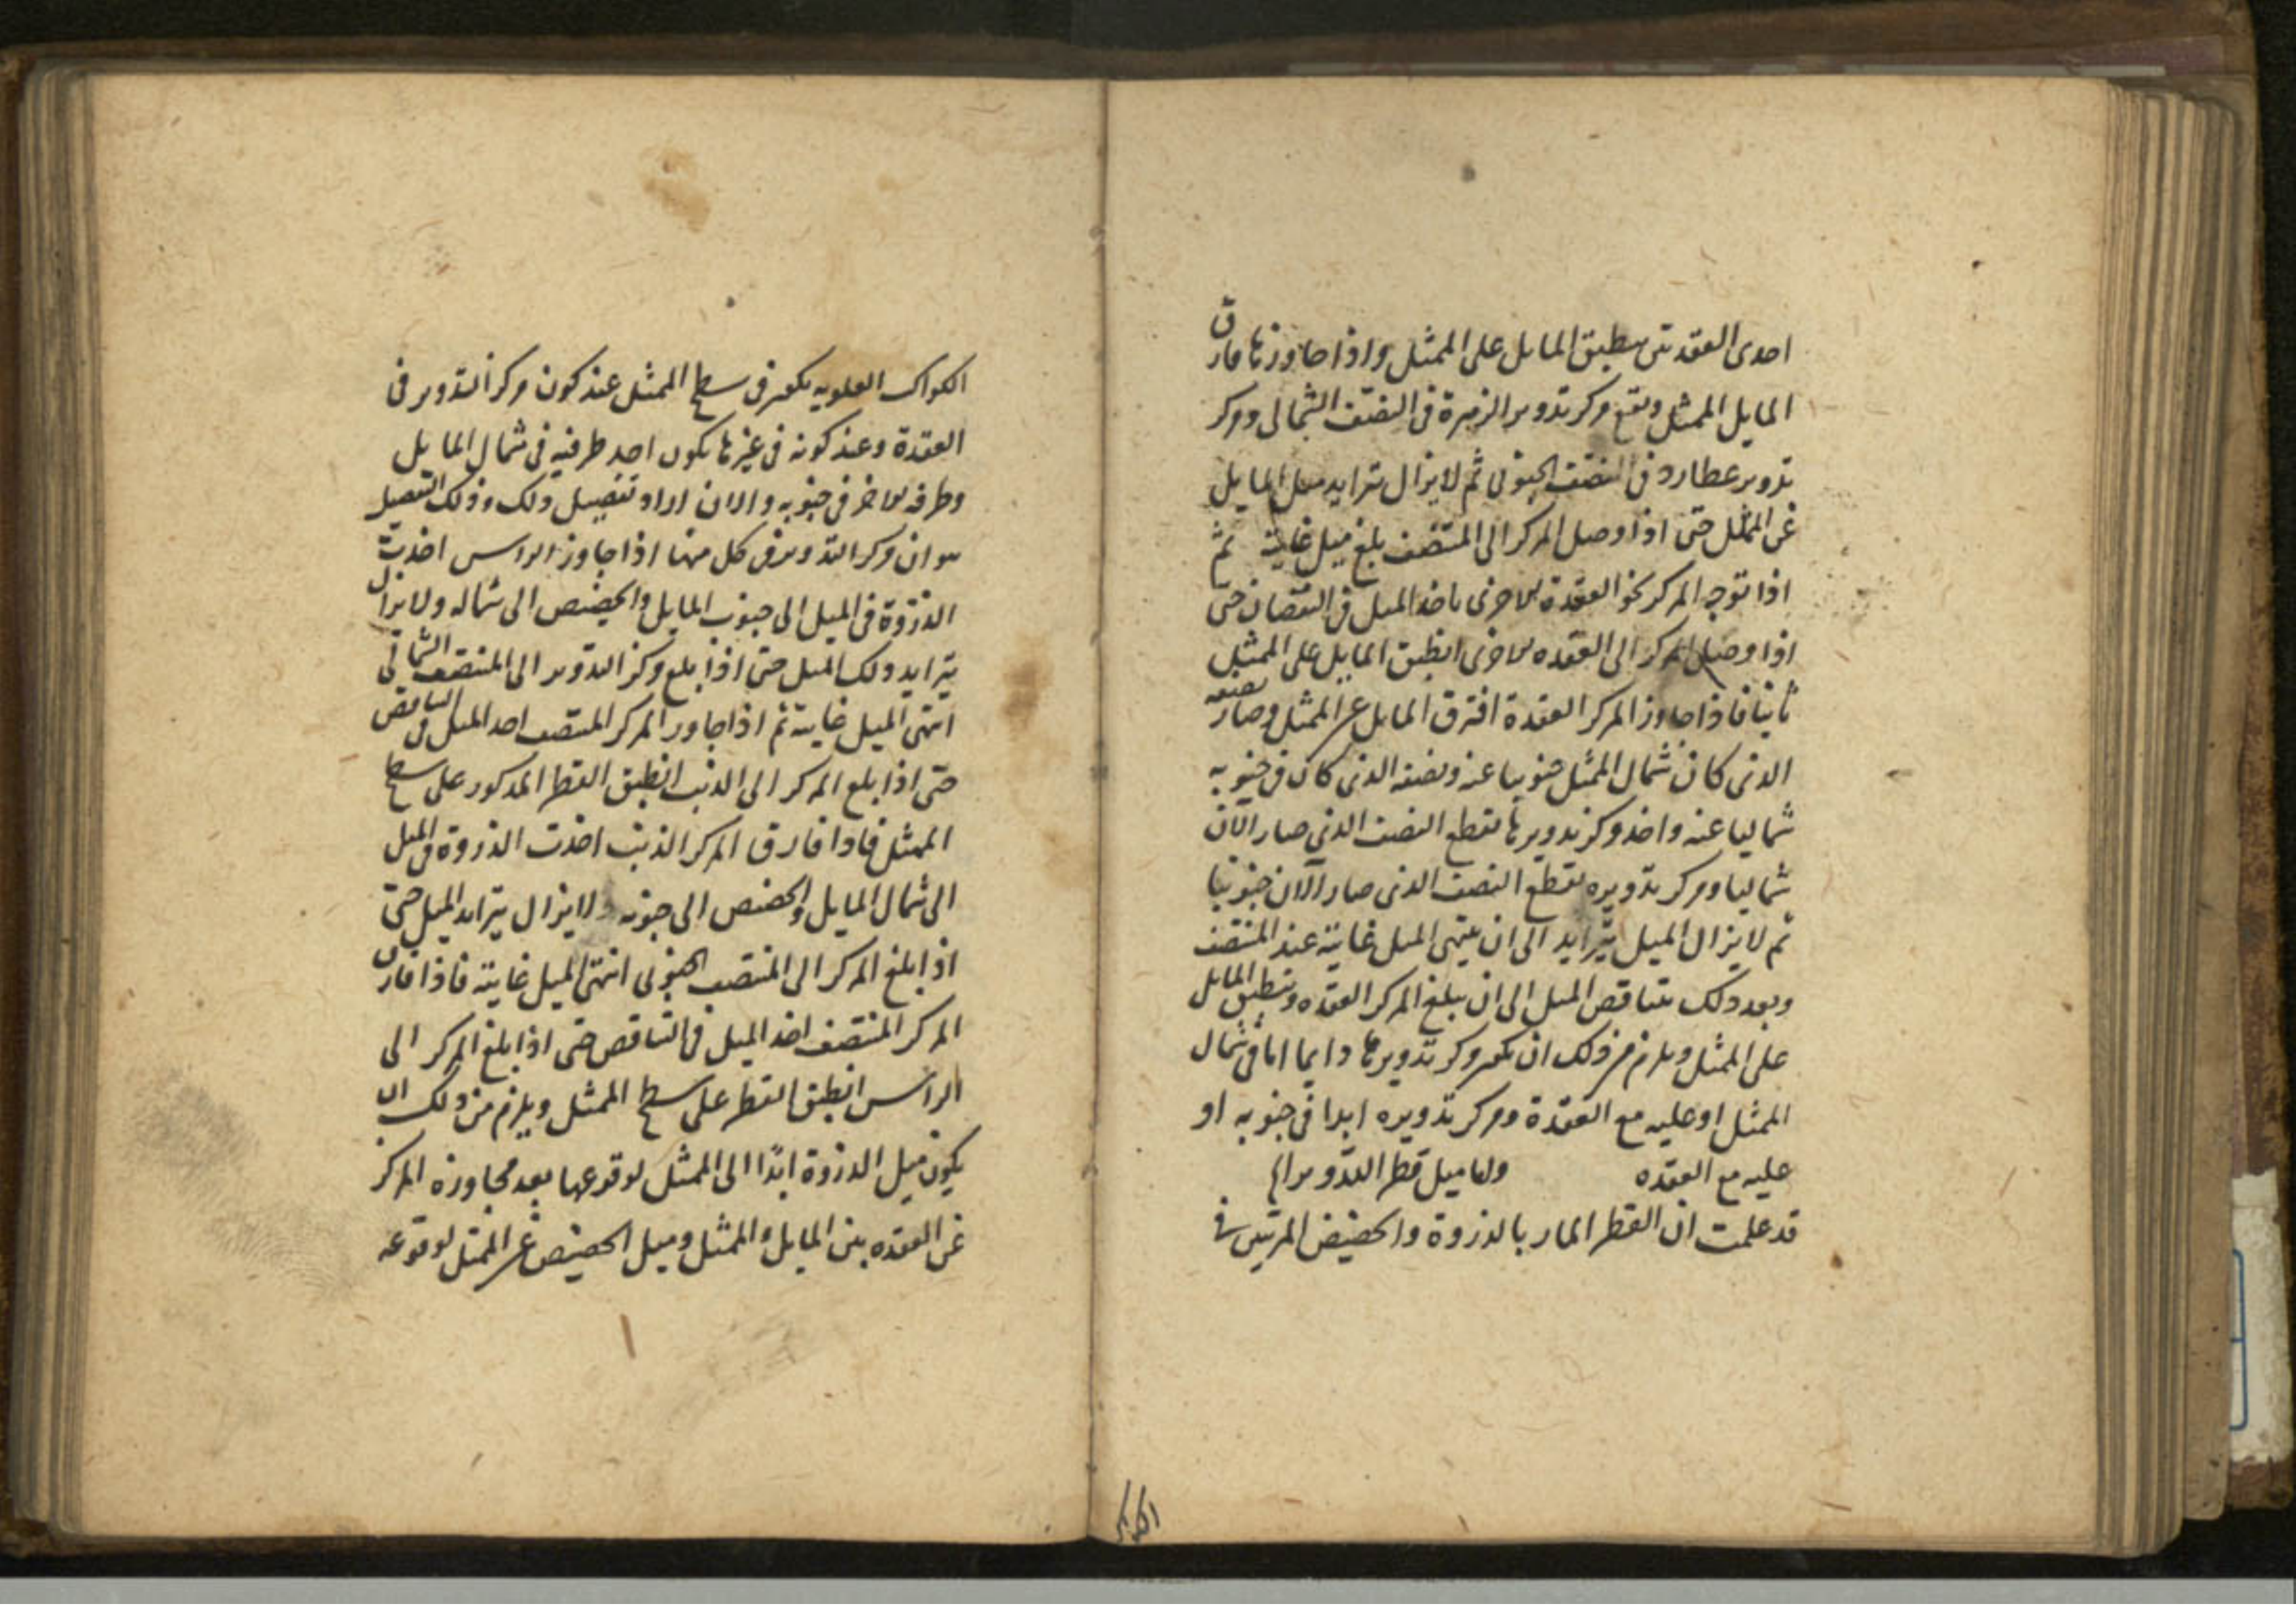 احدى العقدتين ينطبق المايل على الممثل واذا جاوزتا فارق
المايل الممثل ويقع مركز تدوير الزهرة في النصف الشمالي ومركز
تدوير عطارد في النصف الجنوبي ثم لا يزال يتزايد ميل المايل
عن الممثل حتى اذا وصل المركز الى المنتصف بلغ ميل غايته ثم
اذا توجه المركز نحو العقدة الاخرى ياخذ الميل في النقصان حتى
اذا وصل المركز الى العقده الاخرى انطبق المايل على الممثل
ثانيا فاذا جاوز المركز العقدة افترق المايل عن الممثل وصار نصفه
الذي كان شمال الممثل جنوبيا عنه ونصفه الذي كان في جنوبه
شماليا عنه واخذ مركز تدويرها يقطع النصف الذي صار الآن
شماليا ومركز تدويره يقطع النصف الذي صار الآن جنوبيا
ثم لا يزال الميل يتزايد الى ان ينتهي الميل غايته عند المنتصف
وبعد ذلك يتناقص الميل الى ان يبلغ المركز العقده وينطبق المايل
على الممثل ويلزم من ذلك ان يكون مركز تدويرها دايما اما في شمال
الممثل او عليه مع العقدة ومركز تدويره ابدا في جنوبه او
عليه مع العقده واما ميل قطر التدوير الخ
قد علمت ان القطر المار بالذروة والحضيض المرئيين في
الكواكب
الكواكب العلويه يكون في سطح الممثل عند كون مركز التدوير في
العقدة وعند كونه في غيرها يكون احد طرفيه في شمال المايل
وطرفه الاخر في جنوبه والان اراد تفصيل ذلك وذلك التفصيل
هو ان مركز التدوير في كل منها اذا جاوز الراس اخذت
الذروة في الميل الى جنوب المايل والحضيض الى شماله ولا يزال
يتزايد ذلك الميل حتى اذا بلغ مركز التدوير الى المنتصف الشمالي
انتهى الميل غايته ثم اذا جاوز المركز المنتصف اخذ الميل في التناقص
حتى اذا بلغ المركز الى الذنب انطبق القطر المذكور على سطح
الممثل فاذا فارق المركز الذنب اخذت الذروة في الميل
الى شمال المايل والحضيض الى جنوبه ولا يزال يتزايد الميل حتى
اذا بلغ المركز الى المنتصف الجنوبي انتهى الميل غايته فاذا فارق
المركز المنتصف اخذ الميل في التناقص حتى اذا بلغ المركز الى
الراس انطبق القطر على سطح الممثل ويلزم من ذلك ان
يكون ميل الذروة ابدًا الى الممثل لوقوعها بعد مجاوزة المركز
عن العقده بين المايل والممثل وميل الحضيض عن الممثل لوقوعه